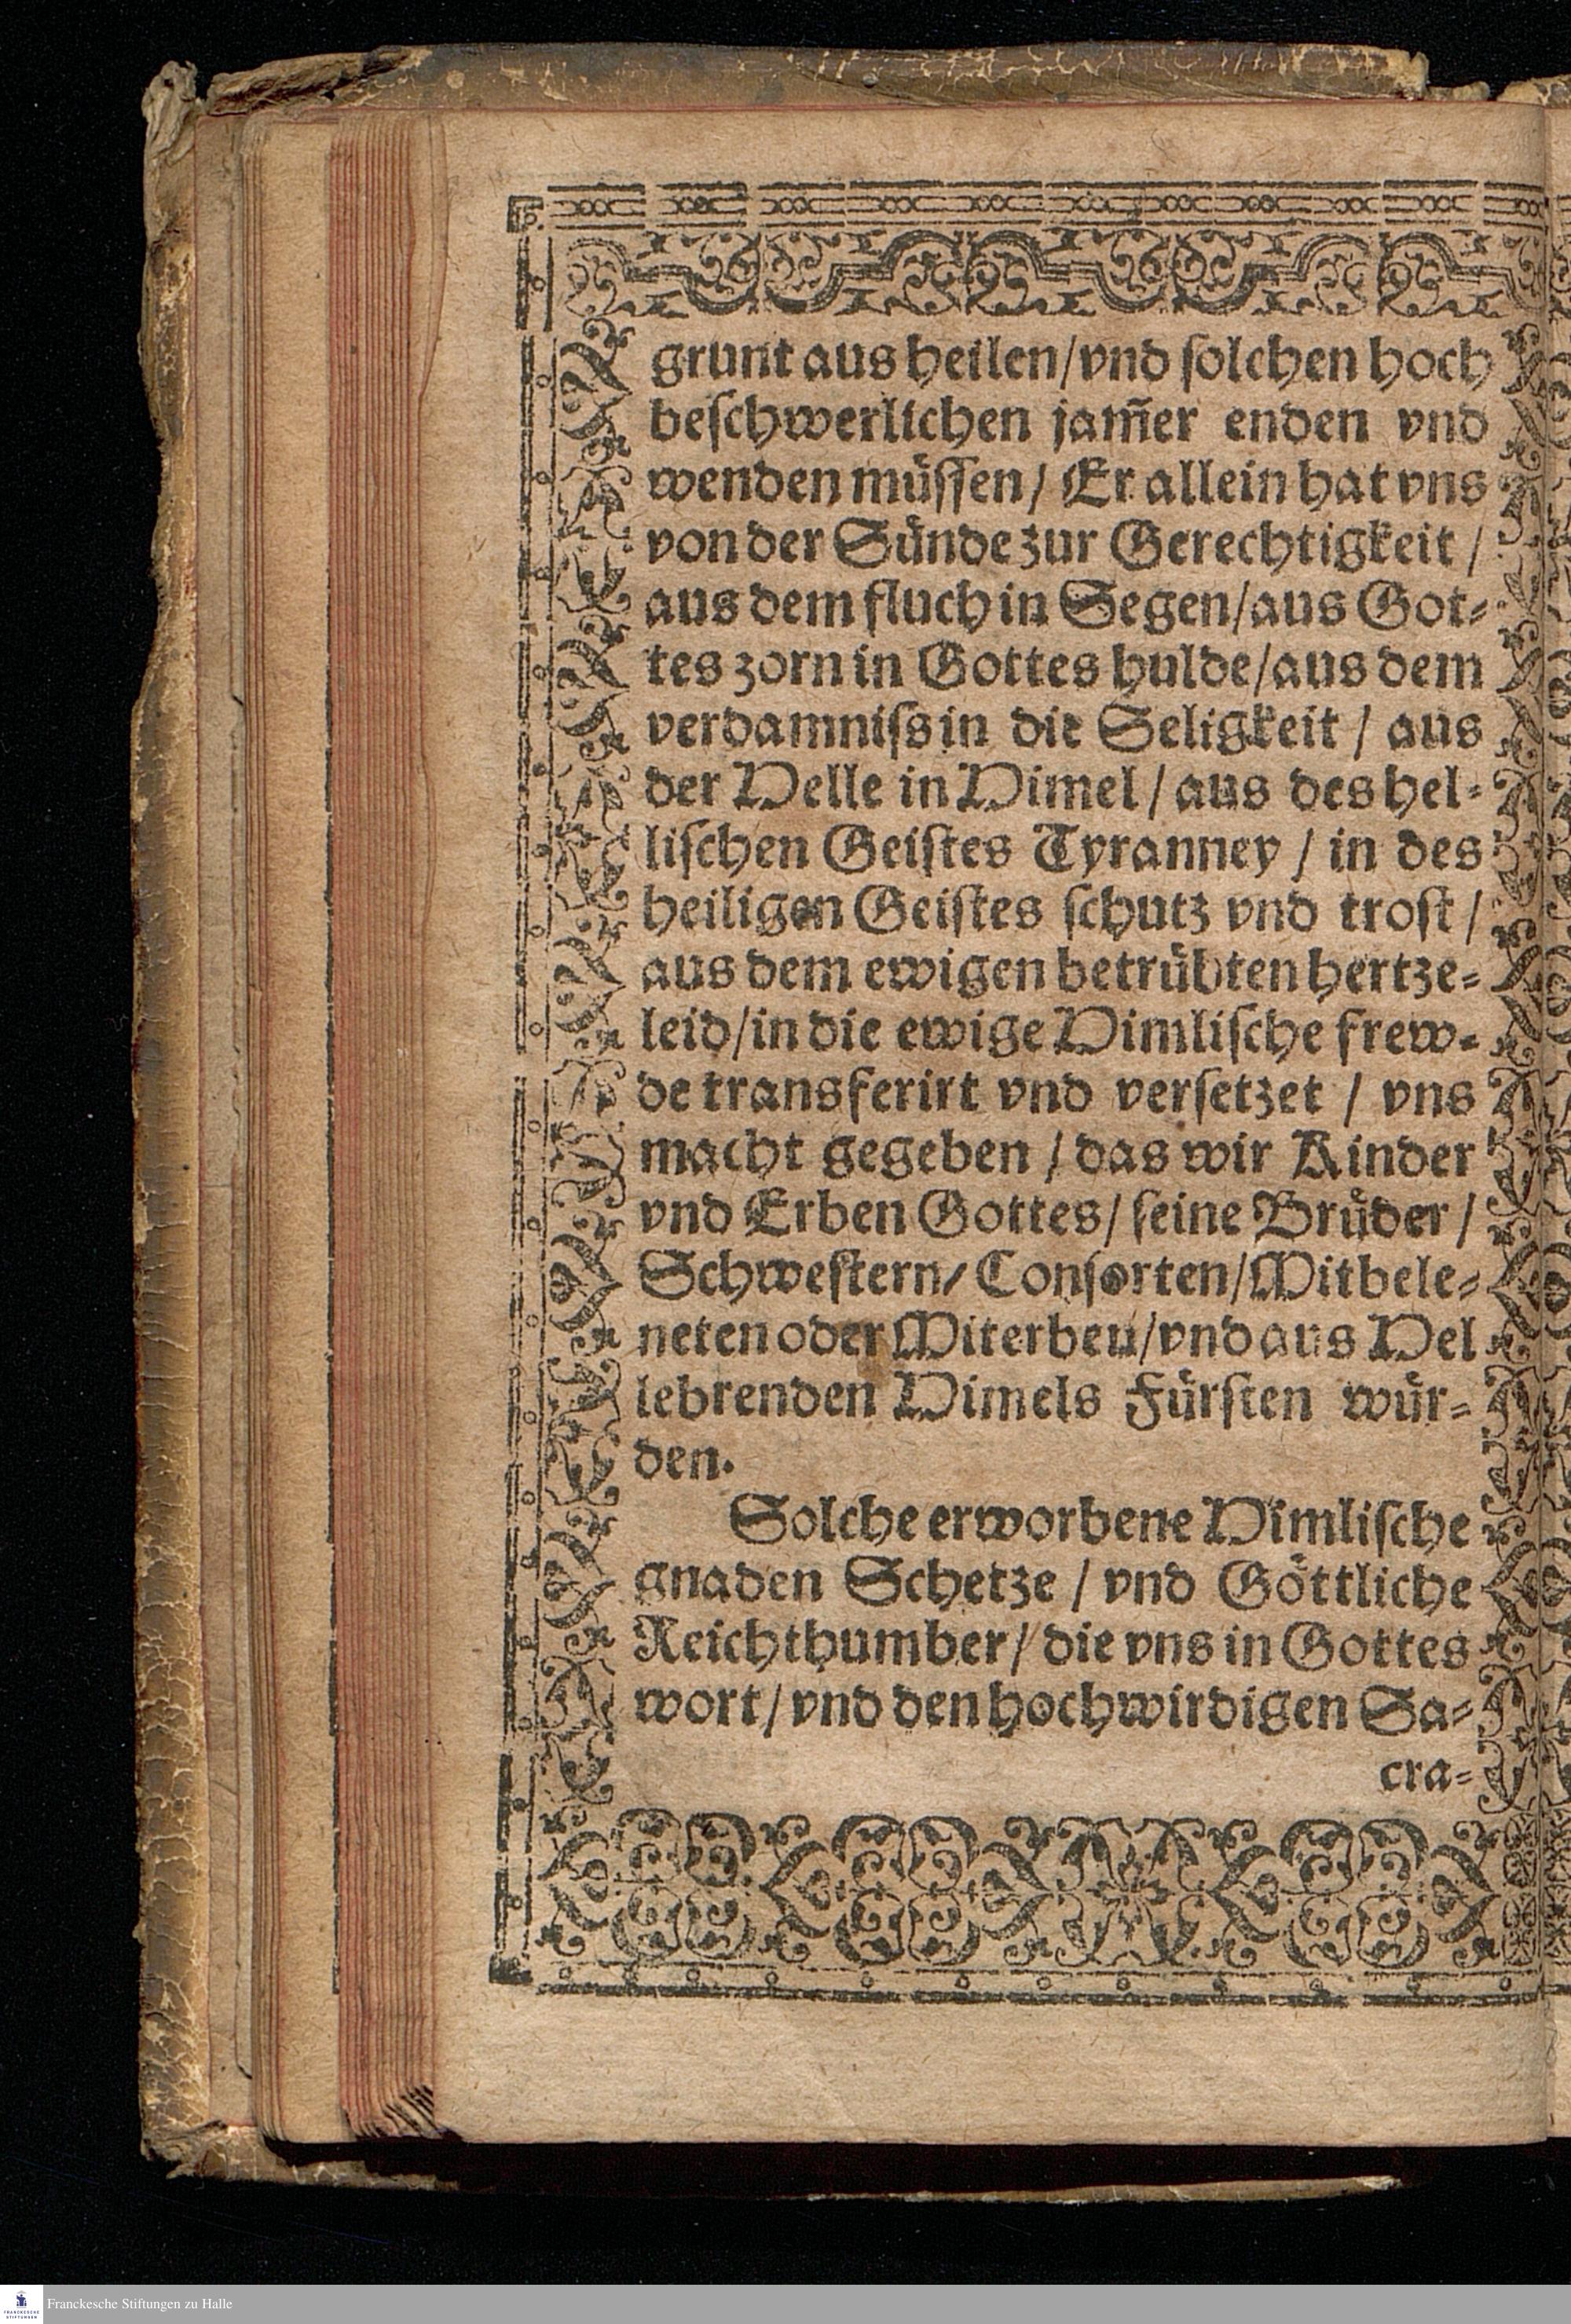 grunt aus heilen/vnd ſolchen hoch
beſchwerlichen jam̃er enden vnd
wenden müſſen/ Er allein hat vns
von der Sünde zur Gerechtigkeit /
aus dem fluch in Segen/aus Got⸗
tes zorn in Gottes hulde/aus dem
verdamniſs in die Seligkeit / aus
der Helle in Himel / aus des hel⸗
liſchen Geiſtes Tyranney / in des
heiligen Geiſtes ſchutz vnd troſt /
aus dem ewigen betrübten hertze⸗
leid/in die ewige Himliſche frew⸗
de transferirt vnd verſetzet / vns
macht gegeben / das wir Kinder
vnd Erben Gottes/ ſeine Brüder /
Schweſtern/ Conſorten/Mitbele⸗
neten oder Miterben/vnd aus Hel
lebrenden Himels Fürſten wür⸗
den.
Solche erworbene Himliſche
gnaden Schetze / vnd Göttliche
Reichthumber/ die vns in Gottes
wort/ vnd den hochwirdigen Sa⸗
cra⸗
Franckesche Stiftungen zu Halle
FRANCKESCHE
STIFTUNGEN